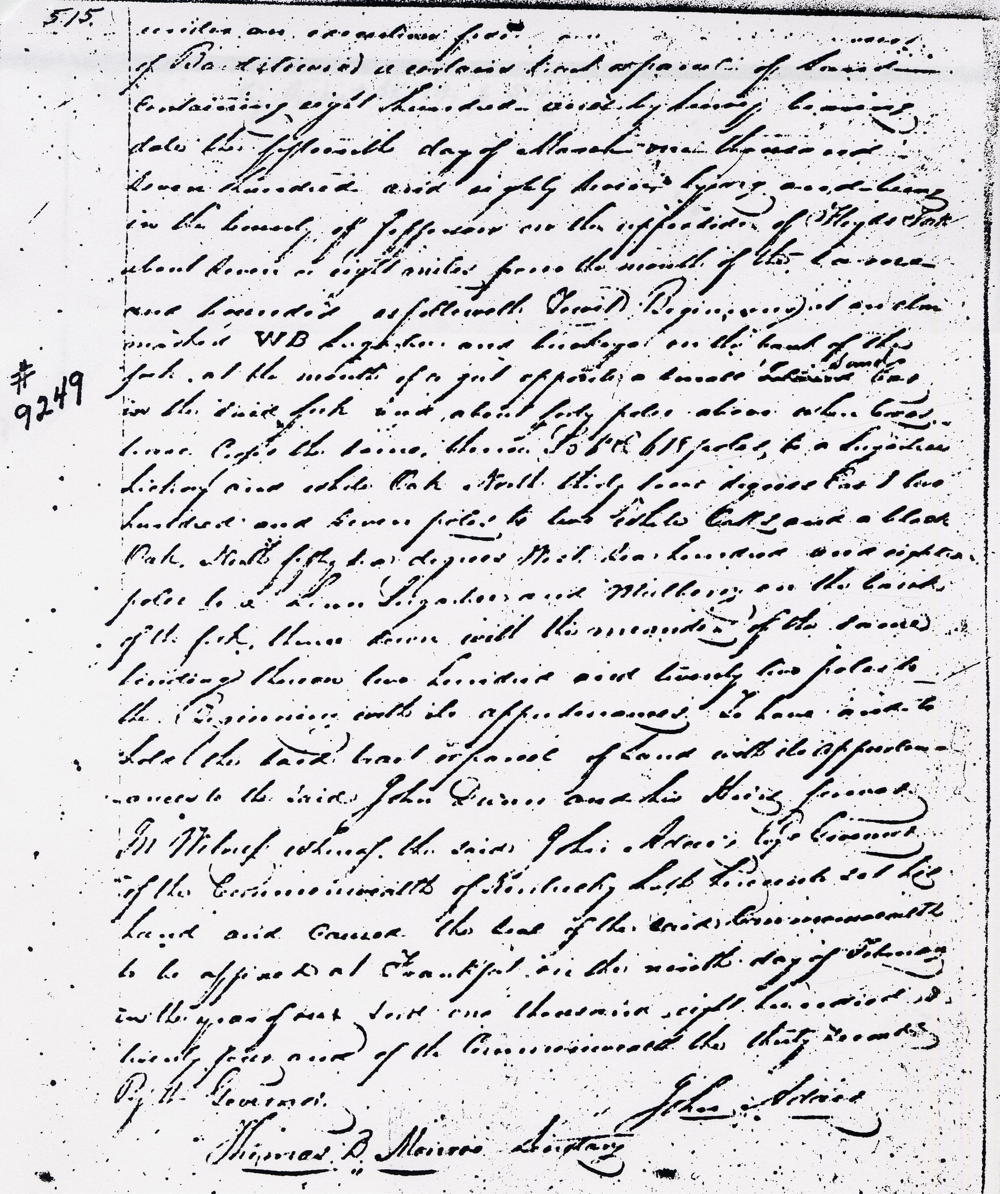 515
under an execution from
of Ba a certain tract or parcel of Land
containing eight hundred by survey bearing
date the fifteenth day of March one thousand
seven hundred and eighty seven lying and being
in the County of Jefferson on the of Floyds Fork
about seven or eight miles from the mouth of the same
and bounded as followeth Towit, Beginning at an elm
marked WB Sugartree and buckeye on the bank of the
fork at the mouth of a gut opposite a small Sand bar
#
9249
in the said fork and about forty poles above where
the same, thence poles, to a Sugartree
hickory and white Oak North thirty degrees East two
hundred and seven poles to two White Oaks and a black
Oak, North fifty degrees West hundred and eighteen
poles to a Sugartree and Mulberry on the bank
of the fork, thence down with the meanders of the same
binding thereon two hundred and twenty two poles to
the Beginning with its appurtenances, To have and to
hold the said tract or parcel of Land with its appurten-
ances to the said John and his Heirs forever
In Witness whereof, the said John Adair, Esq. Governor
of the Commonwealth of Kentucky hath hereunto set his
hand and caused the seal of the said Commonwealth
to be affixed at Frankfort on the ninth day of February
in the year of our Lord one thousand eight hundred &
twenty four and of the Commonwealth the thirty second
By the Governor.
John Adair
Thomas B. Monroe Secretary